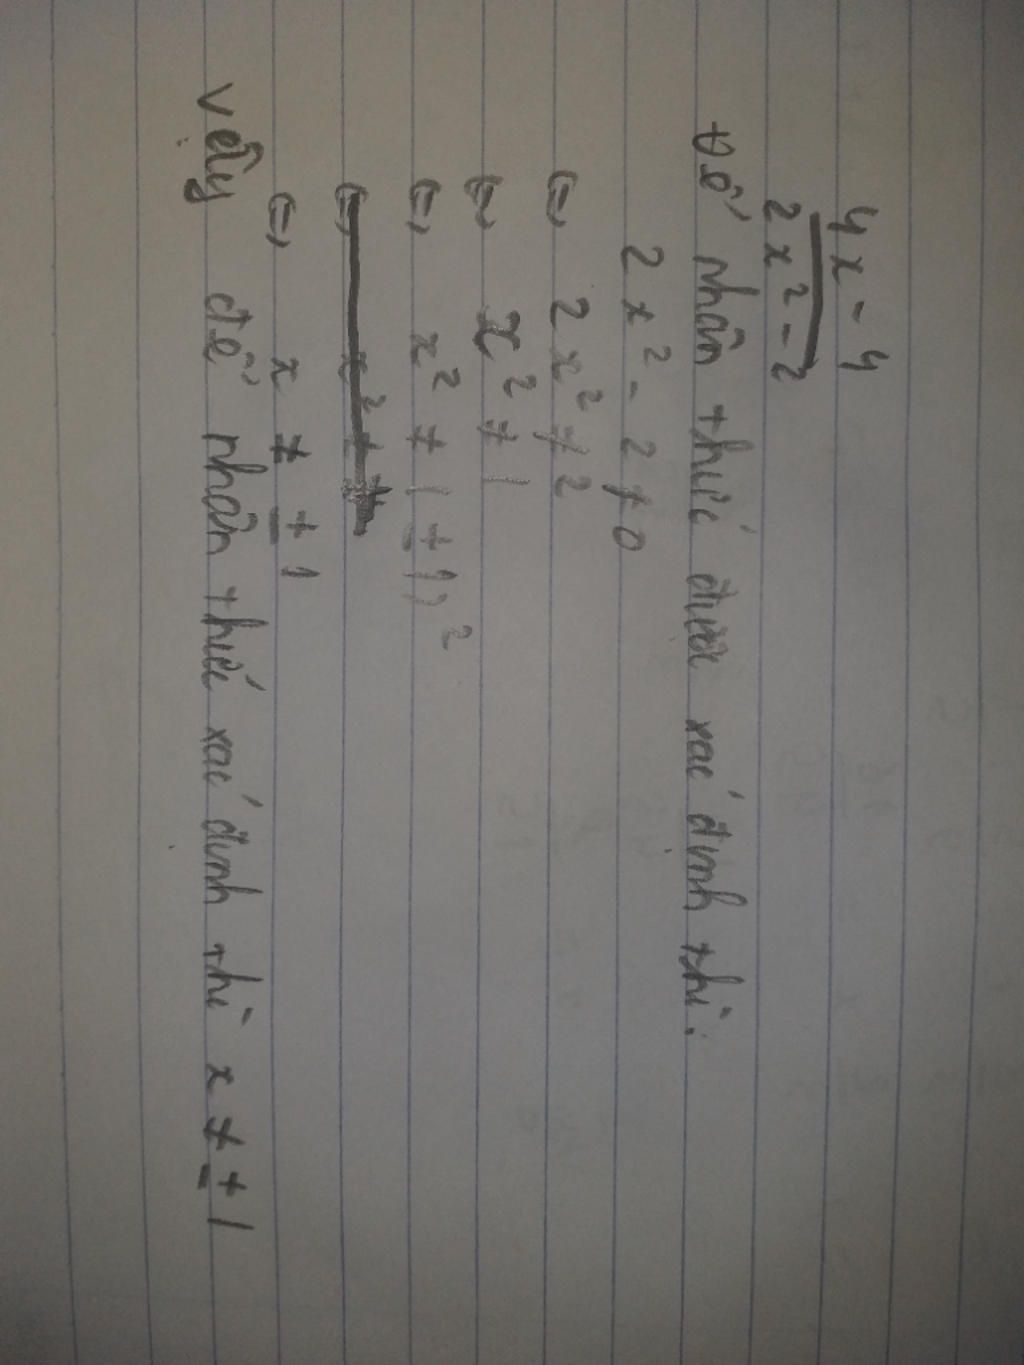 4x - 4
2x² - 2
Để nhân thức được xác định thì:
2x² - 2 ≠ 0
⇔ 2x² ≠ 2
⇔ x² ≠ 1
⇔ x² ≠ (±1)²
⇔ x ≠ ±1
Vậy để nhân thức xác định thì x ≠ ±1